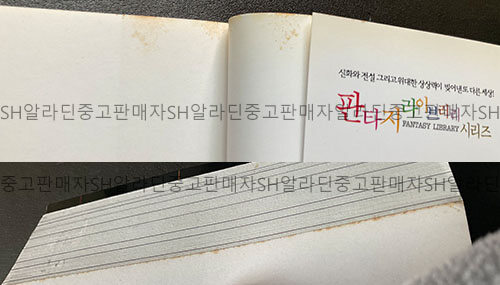 신화와 전설 그리고 위대한 상상력이 빚어낸 또 다른 세상!
판타지 라이브러리
FANTASY LIBRARY 시리즈
SH알라딘중고판매자SH알라딘중고판매자SH알라딘중고판매자SH
중고판매자SH알라딘중고판매자SH알라딘중고판매자SH알라딘